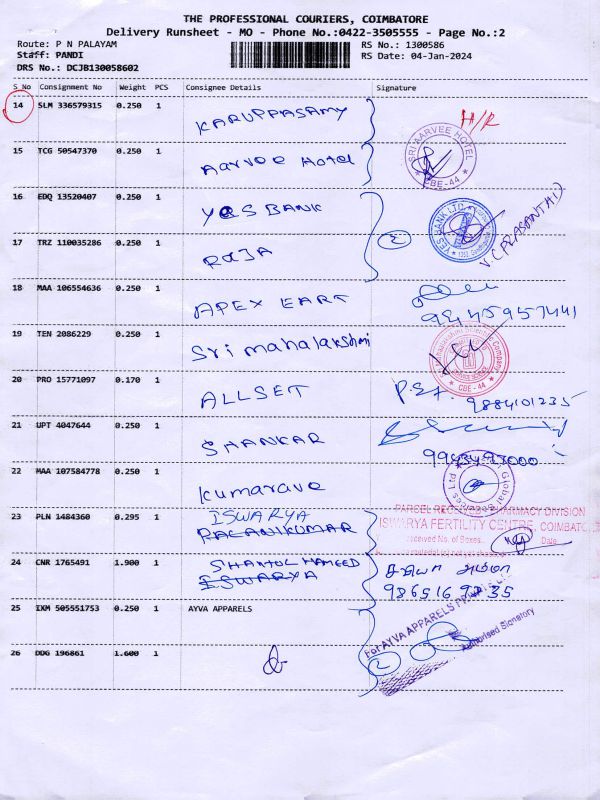 THE PROFESSIONAL COURIERS, COIMBATORE
Delivery Runsheet - MO - Phone No.:0422-3505555 - Page No.:2
Route: P N PALAYAM RS No.: 1300586
Staff: PANDI RS Date: 04-Jan-2024
DRS No.: DCJB130058602
S No Consignment No Weight PCS Consignee Details Signature
14 SLM 336579315 0.250 1 KARUPPASAMY H/R
15 TCG 50547370 0.250 1 Aarvee Hotel SRI AARVEE HOTEL CBE-44
16 EDQ 13520407 0.250 1 YES BANK YES BANK LTD
17 TRZ 110035286 0.250 1 RAJA 2
18 MAA 106554636 0.250 1 APEX EART
19 TEN 2086229 0.250 1 Sri mahalakshmi CBE - 44
20 PRO 15771097 0.170 1 ALLSET 9884101235
21 UPT 4047644 0.250 1 SHANKAR
22 MAA 107584778 0.250 1 Kumarave Global
23 PLN 1484360 0.295 1 ISWARYA PALANIKUMAR
PHARMACY DIVISION
ISWARYA FERTILITY CENTRE, COIMBATO
eceived No. of Boxes Date
24 CNR 1765491 1.900 1 HAMEED ISWARYA
25 IXM 505551753 0.250 1 AYVA APPARELS For AYVA APPARELS
Authorised Signatory
26 DDG 196861 1.600 1 2